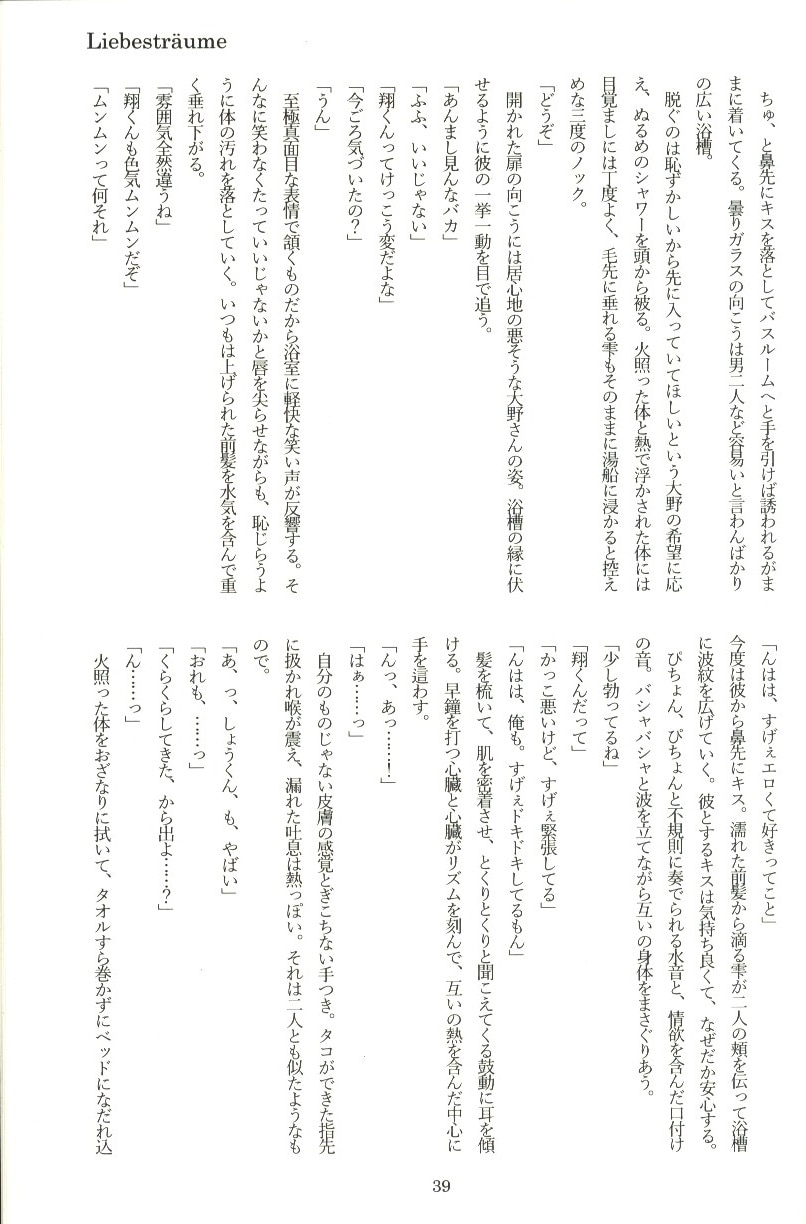 Liebesträume
　ちゅ、と鼻先にキスを落としてバスルームへと手を引けば誘われるがま
まに着いてくる。曇りガラスの向こうは男二人など容易いと言わんばかり
の広い浴槽。
　脱ぐのは恥ずかしいから先に入っていてほしいという大野の希望に応
え、ぬるめのシャワーを頭から被る。火照った体と熱で浮かされた体には
目覚ましには丁度よく、毛先に垂れる雫もそのままに湯船に浸かると控え
めな三度のノック。
「どうぞ」
　開かれた扉の向こうには居心地の悪そうな大野さんの姿。浴槽の縁に伏
せるように彼の一挙一動を目で追う。
「あんまし見んなバカ」
「ふふ、いいじゃない」
「翔くんってけっこう変だよな」
「今ごろ気づいたの?」
「うん」
　至極真面目な表情で頷くものだから浴室に軽快な笑い声が反響する。そ
んなに笑わなくたっていいじゃないかと唇を尖らせながらも、恥じらうよ
うに体の汚れを落としていく。いつもは上げられた前髪を水気を含んで重
く垂れ下がる。
「雰囲気全然違うね」
「翔くんも色気ムンムンだぞ」
「ムンムンって何それ」
「んはは、すげぇエロくて好きってこと」
今度は彼から鼻先にキス。濡れた前髪から滴る雫が二人の頬を伝って浴槽
に波紋を広げていく。彼とするキスは気持ち良くて、なぜだか安心する。
　ぴちょん、ぴちょんと不規則に奏でられる水音と、情欲を含んだ口付け
の音。バシャバシャと波を立てながら互いの身体をまさぐりあう。
「少し勃ってるね」
「翔くんだって」
「かっこ悪いけど、すげぇ緊張してる」
「んはは、俺も。すげぇドキドキしてるもん」
　髪を梳いて、肌を密着させ、とくりとくりと聞こえてくる鼓動に耳を傾
ける。早鐘を打つ心臓と心臓がリズムを刻んで、互いの熱を含んだ中心に
手を這わす。
「んっ、あっ……!」
「はぁ……っ」
　自分のものじゃない皮膚の感覚とぎこちない手つき。タコができた指先
に扱かれ喉が震え、漏れた吐息は熱っぽい。それは二人とも似たようなも
ので。
「あ、っ、しょうくん、も、やばい」
「おれも、……っ」
「くらくらしてきた、から出よ……?」
「ん……っ」
　火照った体をおざなりに拭いて、タオルすら巻かずにベッドになだれ込
39